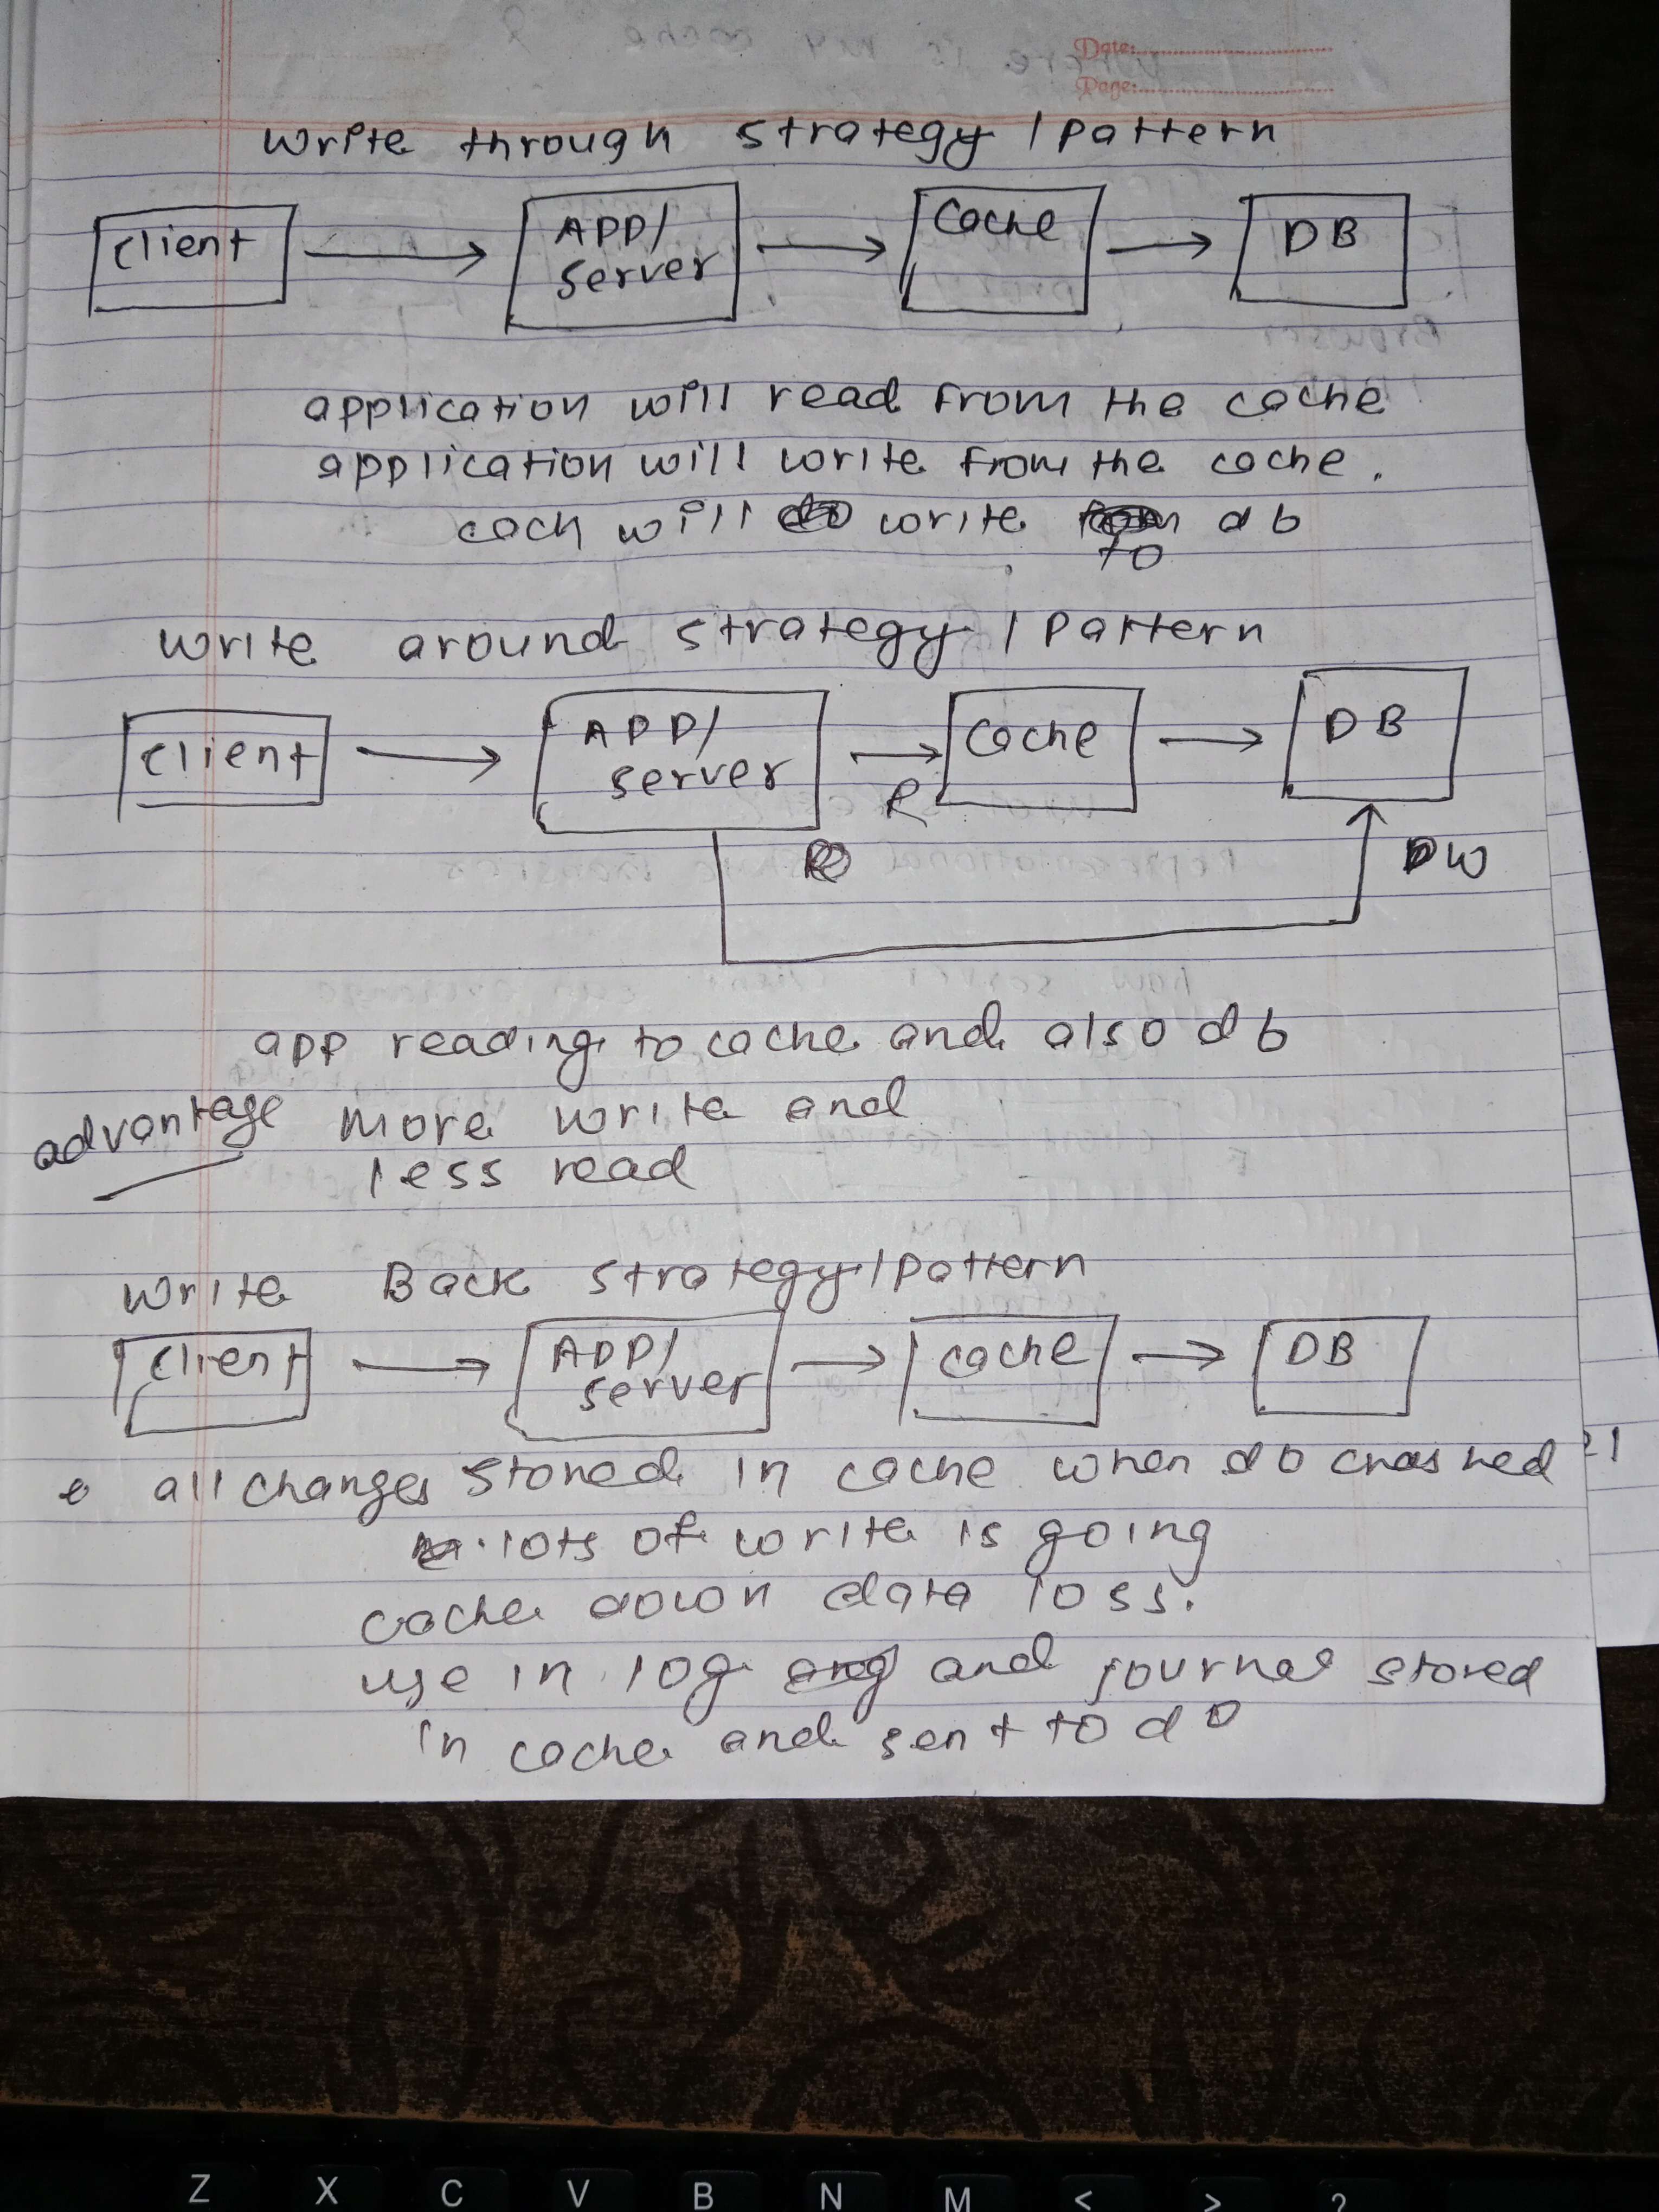 Date:
Page:
write through strategy / pattern
client
APP/
server
cache
DB
application will read from the cache
application will write from the cache.
cach will write to db
write around strategy / pattern
client
APP/
server
cache
DB
R
W
app reading to cache and also db
advantage more write and
less read
write Back strategy / pattern
client
APP/
server
cache
DB
all changes stored in cache when db crashed
lots of write is going
cache down data loss.
use in log and journal stored
in cache and sent to db
Z X C V B N M < > ?